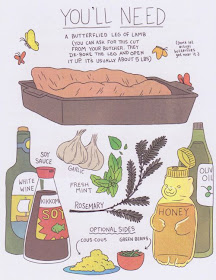 YOU'LL NEED
A BUTTERFLIED LEG OF LAMB
(YOU CAN ASK FOR THIS CUT
FROM YOUR BUTCHER. THEY
DE-BONE THE LEG AND OPEN
IT UP. IT'S USUALLY ABOUT 5 LBS)
SOY
SAUCE
GARLIC
FRESH
MINT
ROSEMARY
WHITE
WINE
KIKKOM
SOY
HONEY
OLIV
OIL
OPTIONAL SIDES
COUS-COUS
GREEN BEANS